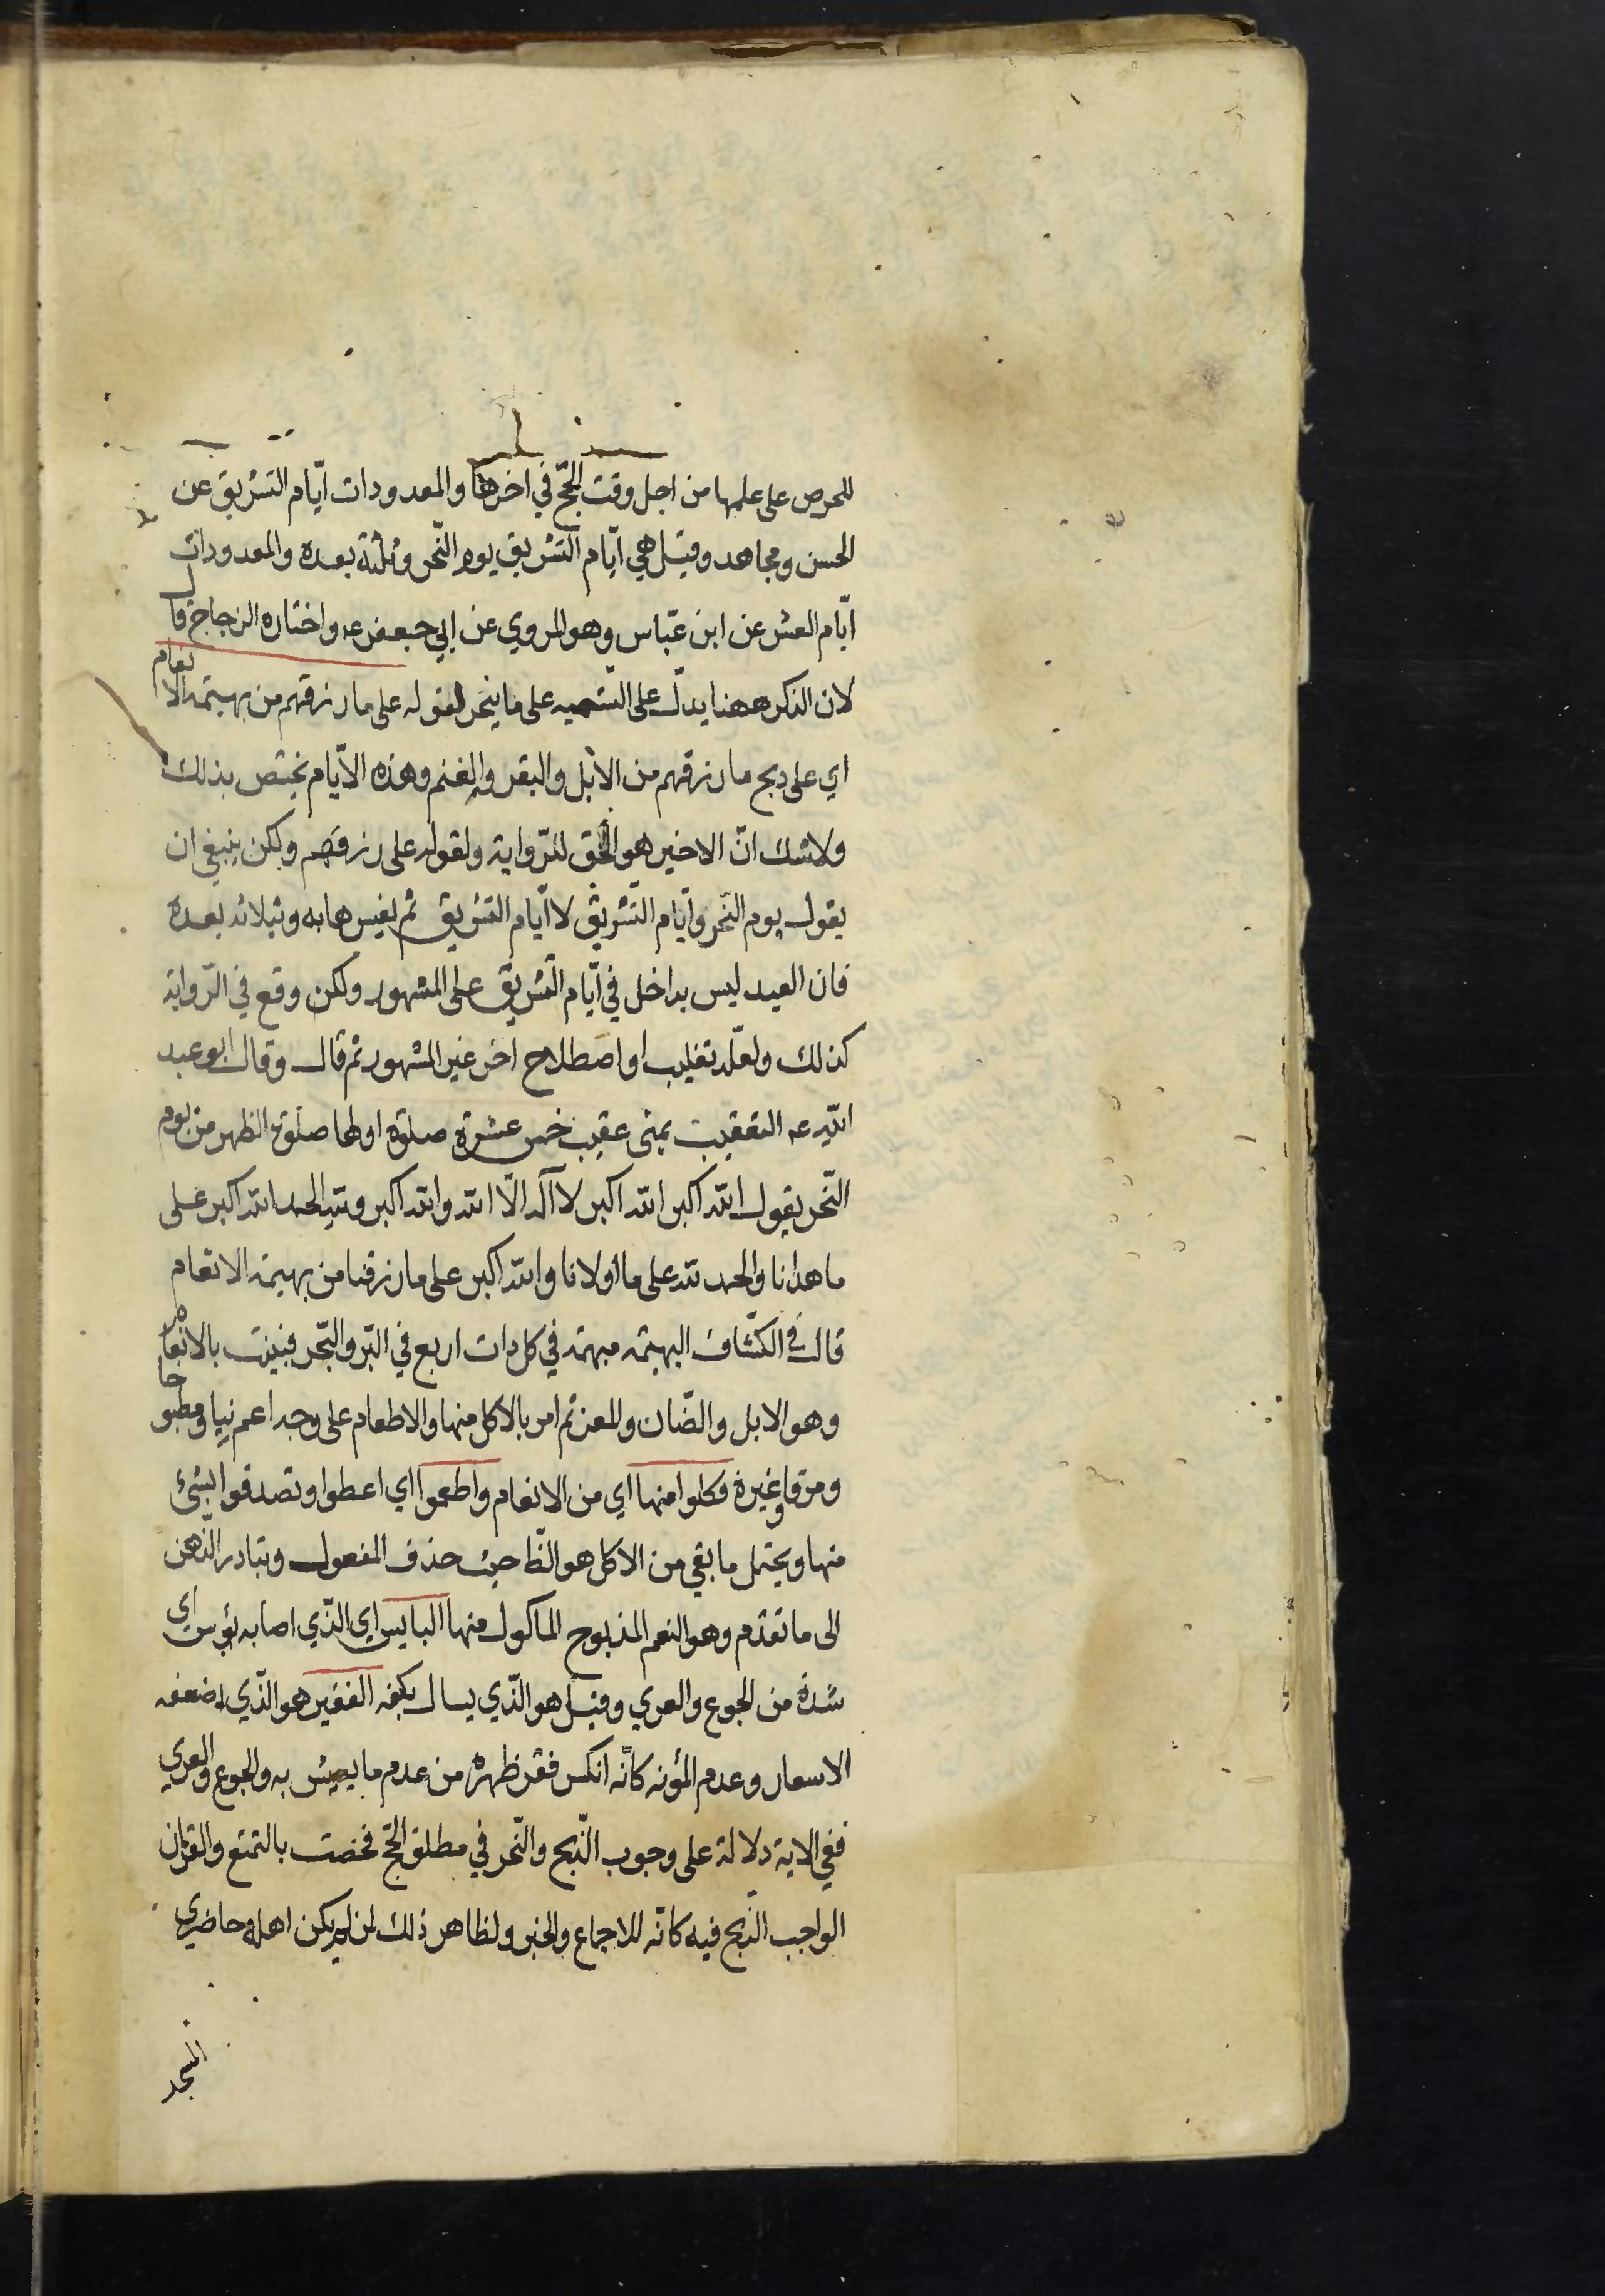 للحرص على علمها من اجل وقت الحجّ في اخرها والمعدودات ايّام التشريق عن
الحسن ومجاهد وقيل هي ايّام التشريق يوم النّحر وثلثة بعده والمعدودات
ايّام العشر عن ابن عبّاس وهو المروي عن ابي جعفر عه واختاره الزجاج قال
لان الذكر ههنا يدلّ على التسميه على ما ينحر لقوله على ما رزقهم من بهيمة الانعام
اي على ذبح ما رزقهم من الابل والبقر والغنم وهذه الايّام تختص بذلك
ولاشك انّ الاخير هو الحق للرّواية ولقوله على رزقهم ولكن ينبغي ان
يقول يوم النّحر وايّام التّشريق لا ايّام التشريق ثم يفسرها به وبثلاثه بعده
فان العيد ليس بداخل في ايّام التّشريق على المشهور ولكن وقع في الرّواية
كذلك ولعلّه تغليب او اصطلاح اخر غير المشهور ثم قال وقال ابو عبد
الله عه التعقيب بمنى عقيب خمس عشرة صلوة اولها صلوة الظهر من يوم
النّحر يقول الله اكبر الله اكبر لا اله الّا الله والله اكبر ولله الحمد الله اكبر على
ما هدانا والحمد لله على ما اولانا والله اكبر على ما رزقنا من بهيمة الانعام
قال في الكشّاف البهيمة مبهمة في كل ذات اربع في البّر والبّحر فبينت بالانعام
وهو الابل والضّان والمعز ثم امر بالاكل منها والاطعام على وجه اعم نيا ومطبوخا
ومرقا وغيره فكلوا منها اي من الانعام واطعموا اي اعطوا وتصدقوا بشئ
منها ويحتمل ما بقي من الاكل هو الظّا حيث حذف المفعول وتبادر الذّهن
الى ما تقدّم وهو النعم المذبوح الماكول منها البايس اي الذّي اصابه بؤس اي
شدة من الجوع والعري وقيل هو الذّي يسال بكفه الفقير هو الذّي اضعفه
الاسعار وعدم المؤنه كانّه انكسر فقر ظهره من عدم ما يعيش به والجوع والعري
ففي الاية دلالة على وجوب الذّبح والنّحر في مطلق الحّج فخصت بالتمتع والقران
الواجب الذّبح فيه كانّه للاجماع والخبر ولظاهر ذلك لمن لم يكن اهله حاضري
المسجد